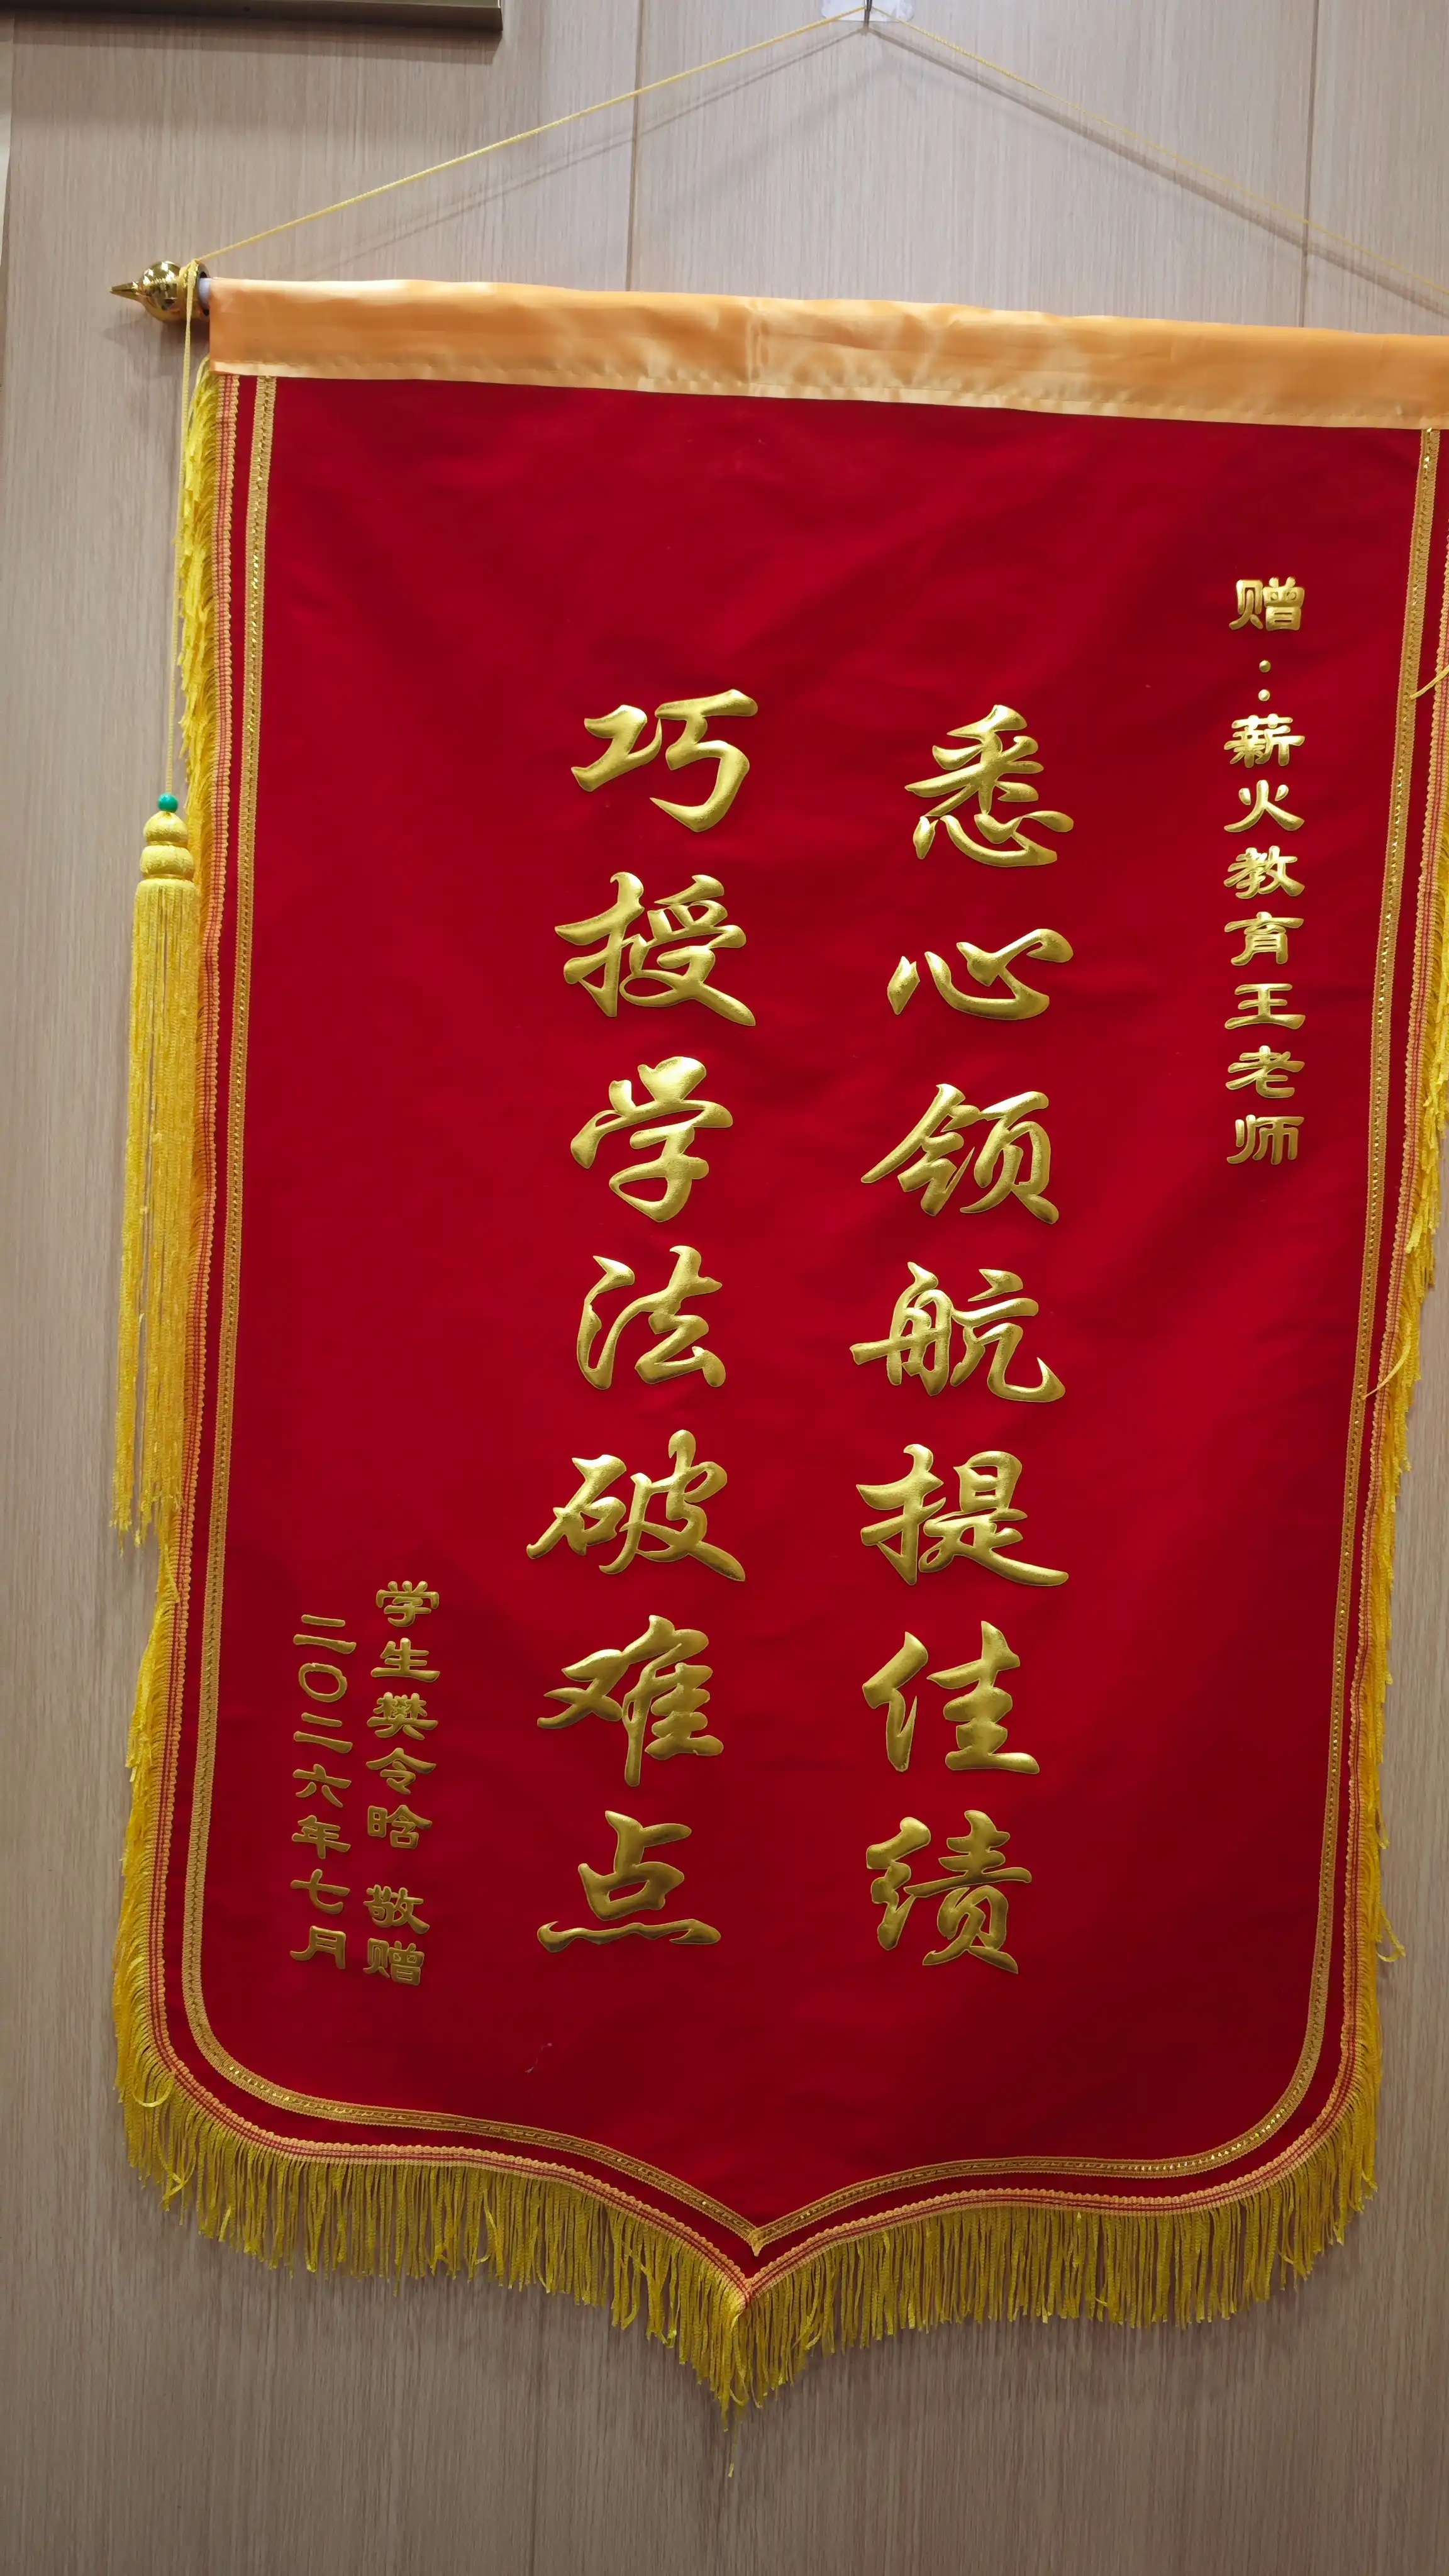 赠：薪火教育王老师
悉心领航提佳绩
巧授学法破难点
学生樊令晗 敬赠
二〇二六年七月